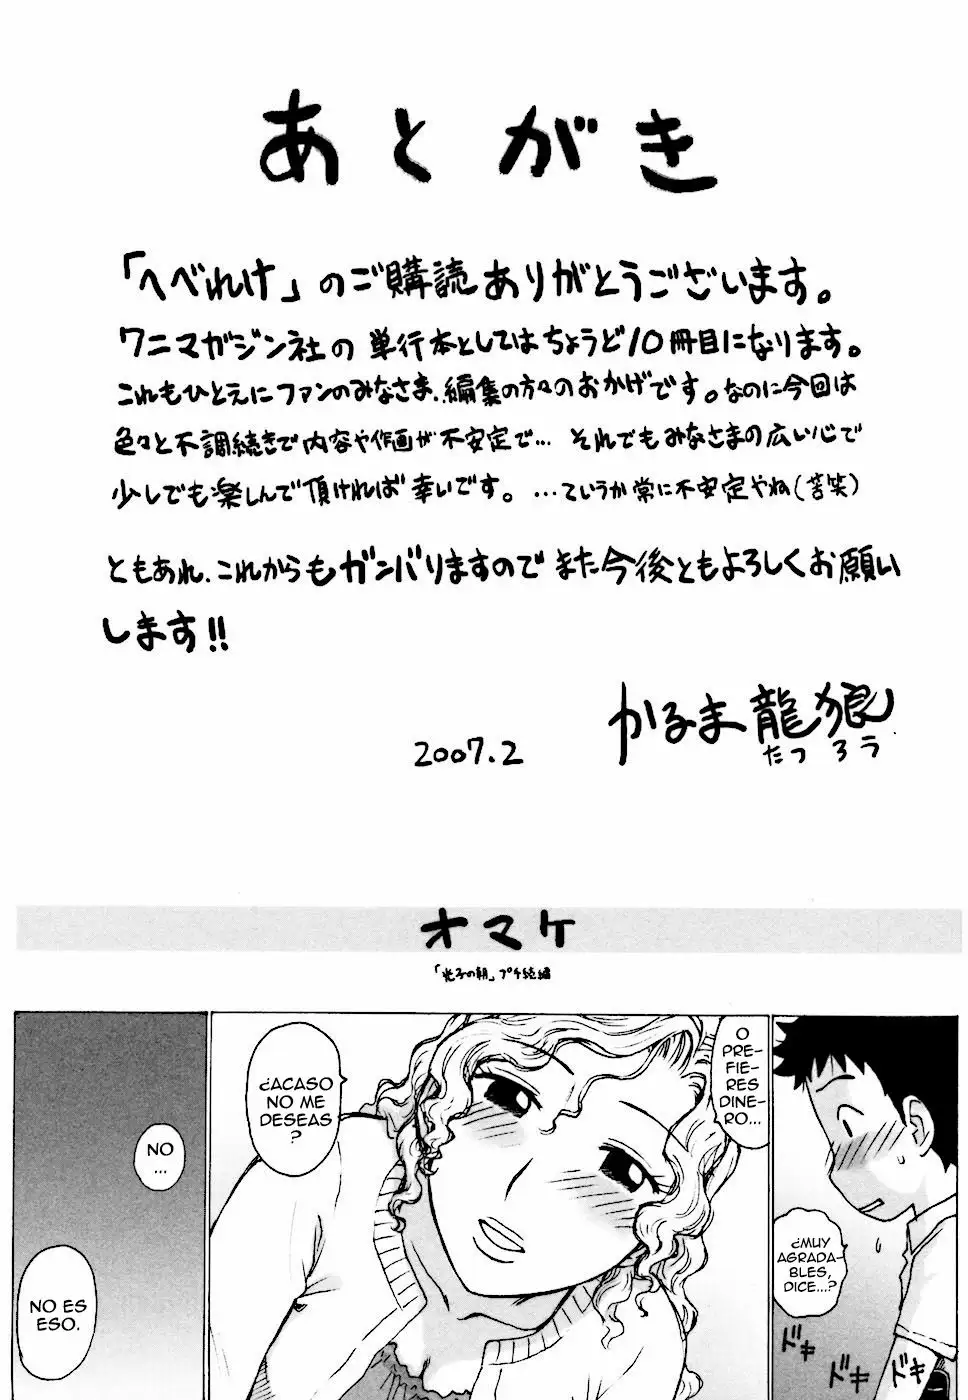 あとがき
「へべれけ」のご購読ありがとうございます。
ワニマガジン社の単行本としてはちょうど10冊目になります。
これもひとえにファンのみなさま、編集の方々のおかげです。なのに今回は
色々と不調続きで内容や作画が不安定で… それでもみなさまの広い心で
少しでも楽しんで頂ければ幸いです。…ていうか常に不安定やね(苦笑)
ともあれ、これからもガンバりますのでまた今後ともよろしくお願い
します!!
かるま龍狼
たつろう
2007.2
オマケ
「光子の朝」プチ続編
O
PRE-
FIE-
RES
DINE-
RO...
¿MUY
AGRADA-
BLES,
DICE...?
ドキ
ドキ
ドキ
¿ACASO
NO ME
DESEAS
?
NO
...
NO ES
ESO.